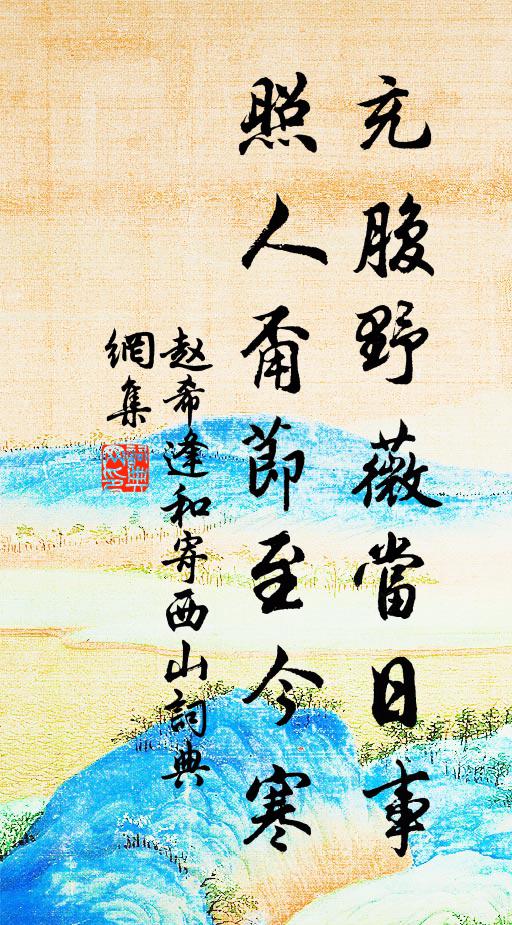 充腹野薇當日事
照人節至今寒
赵希逢和寄西山詞典
網集